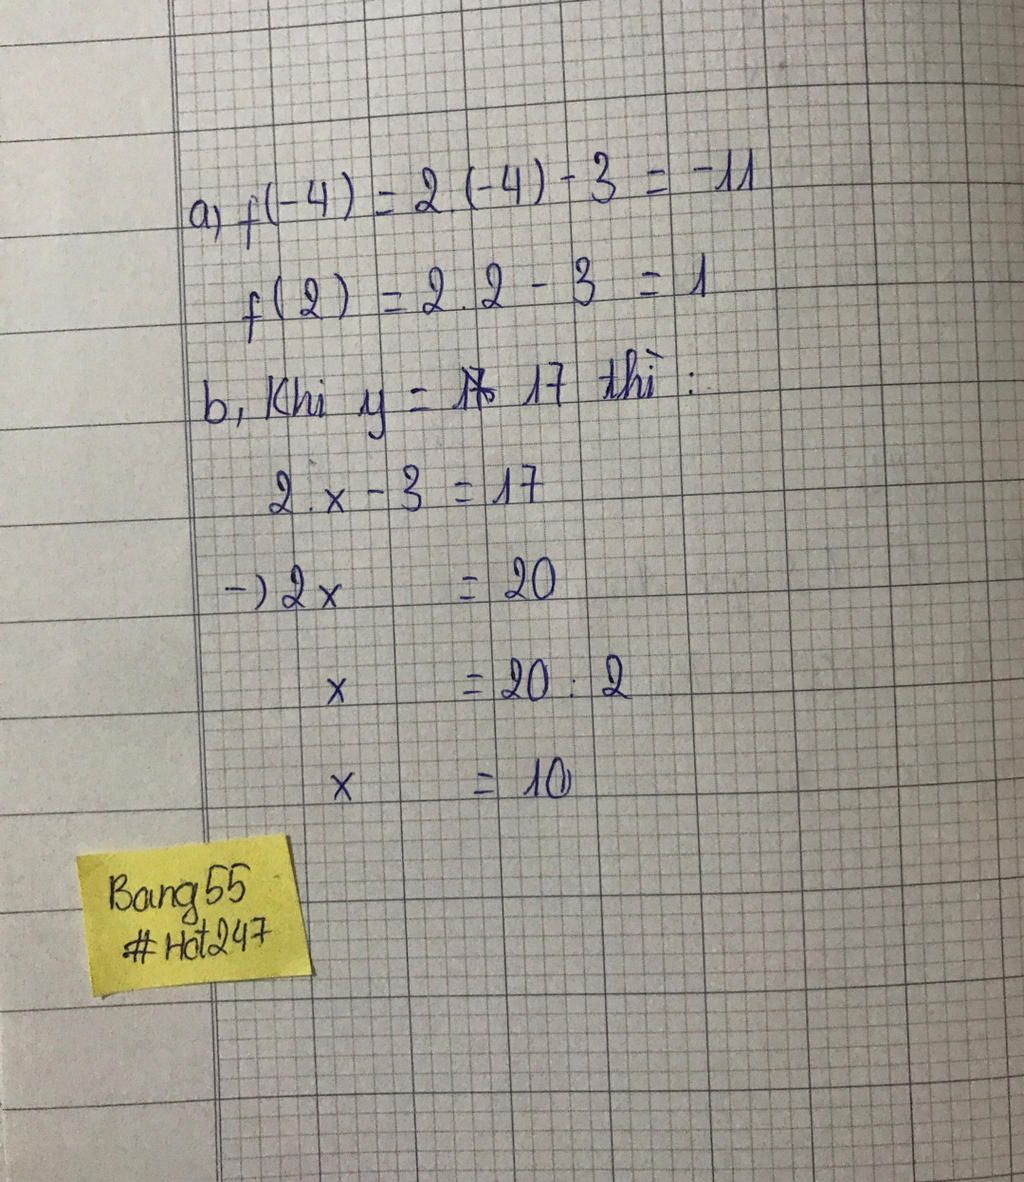 a, f(-4) = 2.(-4) - 3 = -11
f(2) = 2.2 - 3 = 1
b, Khi y = 17 thì :
2.x - 3 = 17
-) 2x = 20
x = 20 : 2
x = 10
Bang55
#Hot247